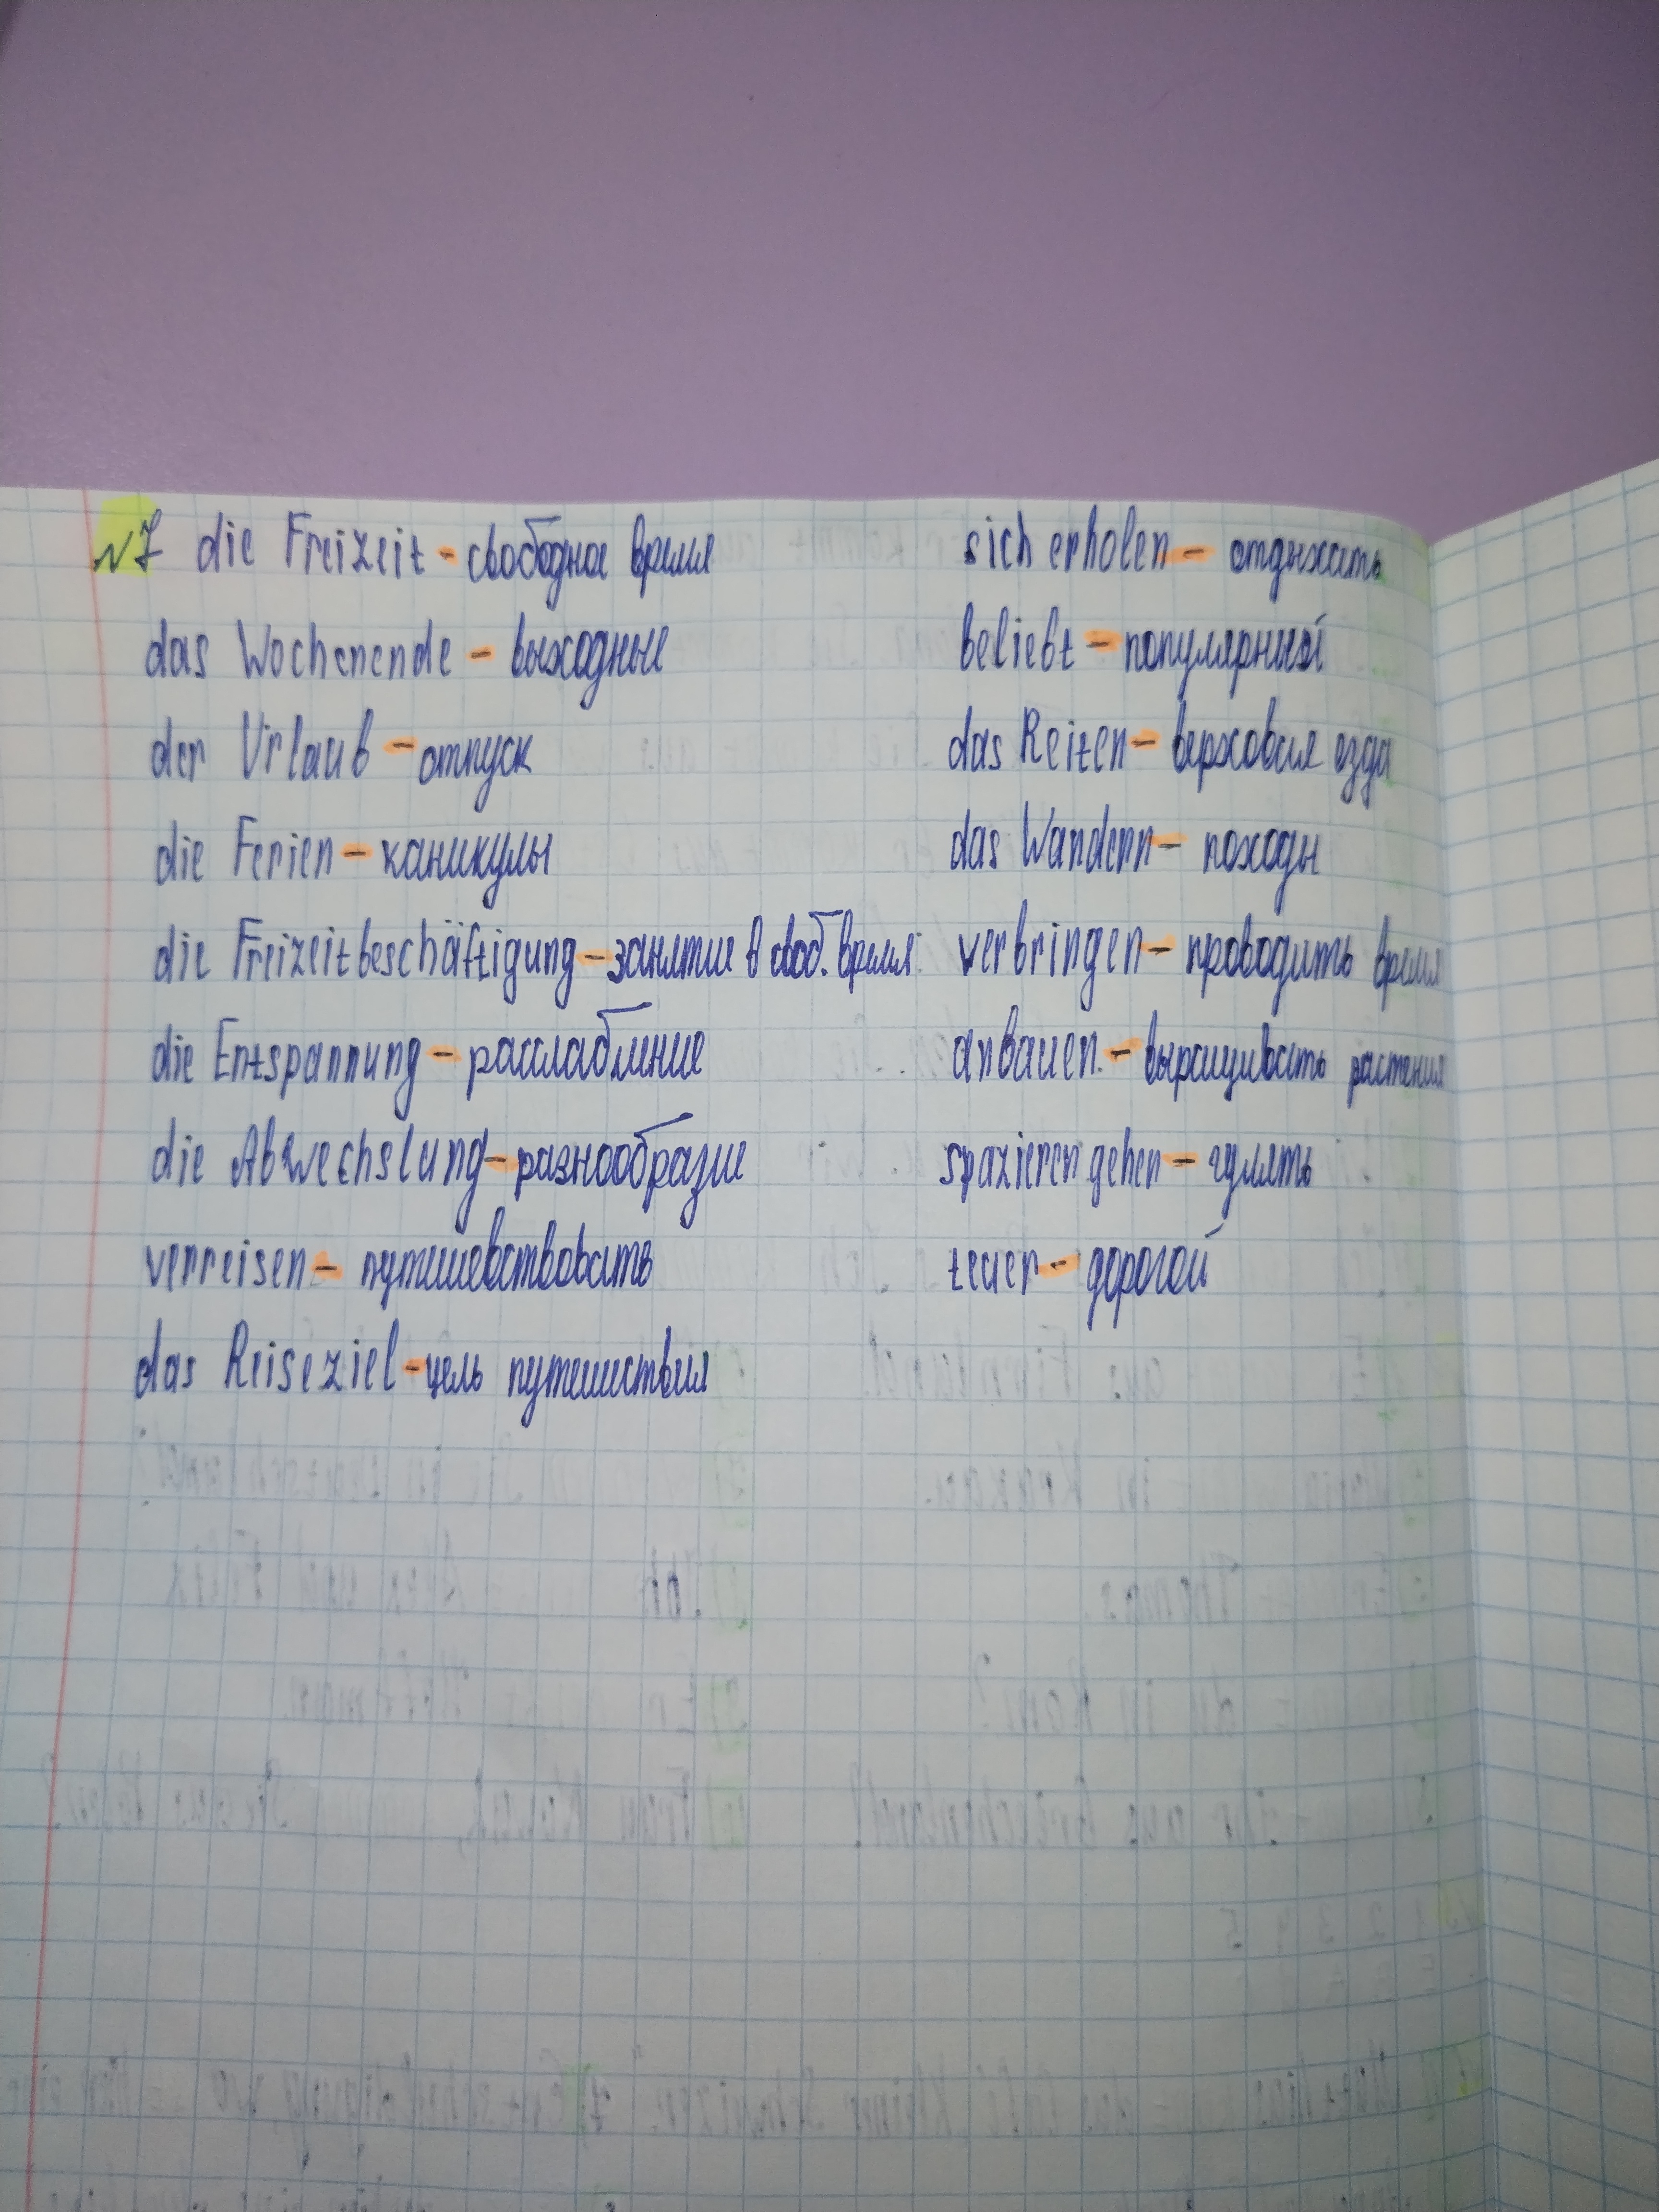 №7 die Freizeit - свободное время
das Wochenende - выходные
der Urlaub - отпуск
die Ferien - каникулы
die Freizeitbeschäftigung - занятие в своб. время
die Entspannung - расслабление
die Abwechslung - разнообразие
verreisen - путешевствовать
das Reiseziel - цель путешествия
sich erholen - отдыхать
beliebt - популярный
das Reiten - верховая езда
das Wandern - походы
verbringen - проводить время
anbauen - выращивать растения
spazieren gehen - гулять
teuer - дорогой